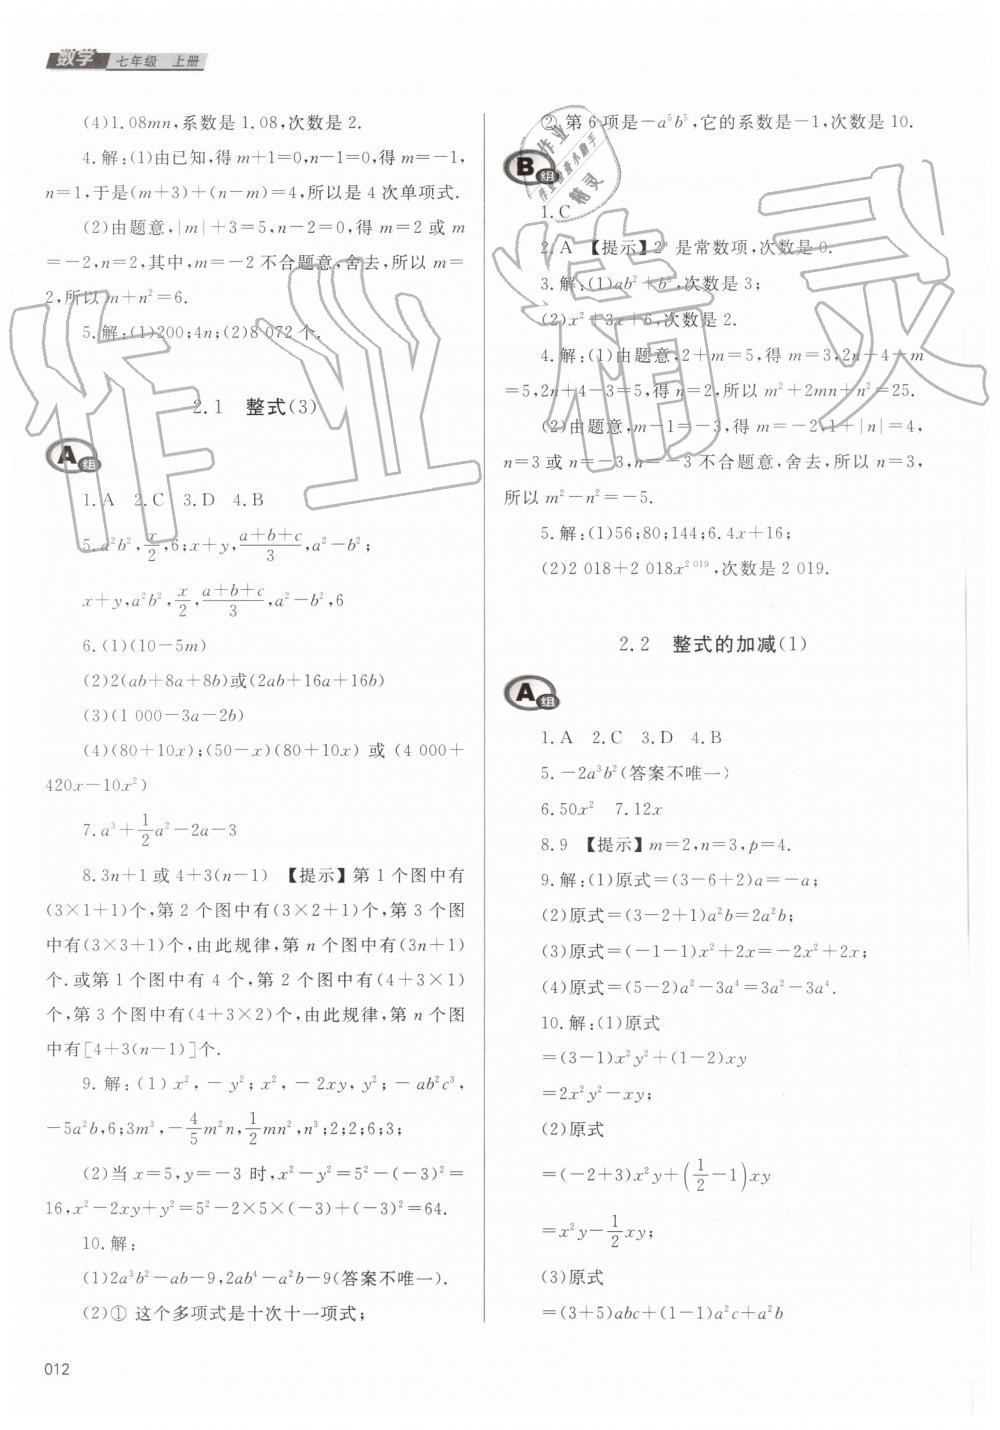 数学 七年级 上册
(4)1.08mn,系数是 1.08,次数是 2.
4.解:(1)由已知,得 m+1=0,n-1=0,得 m=-1,
n=1,于是(m+3)+(n-m)=4,所以是 4 次单项式.
(2)由题意,|m|+3=5,n-2=0,得 m=2 或 m
=-2,n=2,其中,m=-2 不合题意,舍去,所以 m=
2,所以 m+n²=6.
5.解:(1)200;4n;(2)8 072 个.
2.1 整式(3)
A组
1.A 2.C 3.D 4.B
5.a²b²,x/2,6;x+y,(a+b+c)/3,a²-b²;
x+y,a²b²,x/2,(a+b+c)/3,a²-b²,6
6.(1)(10-5m)
(2)2(ab+8a+8b)或(2ab+16a+16b)
(3)(1 000-3a-2b)
(4)(80+10x);(50-x)(80+10x) 或 (4 000+
420x-10x²)
7.a³+1/2a²-2a-3
8.3n+1 或 4+3(n-1) 【提示】第 1 个图中有
(3×1+1)个,第 2 个图中有(3×2+1)个,第 3 个图
中有(3×3+1)个,由此规律,第 n 个图中有(3n+1)
个.或第 1 个图中有 4 个,第 2 个图中有(4+3×1)
个,第 3 个图中有(4+3×2)个,由此规律,第 n 个图
中有[4+3(n-1)]个.
9.解:(1)x²,-y²;x²,-2xy,y²;-ab²c³,
-5a²b,6;3m³,-4/5m²n,1/2mn²,n³;2;2;6;3;
(2)当 x=5,y=-3 时,x²-y²=5²-(-3)²=
16,x²-2xy+y²=5²-2×5×(-3)+(-3)²=64.
10.解:
(1)2a³b²-ab-9,2ab⁴-a²b-9(答案不唯一).
(2)① 这个多项式是十次十一项式;
012
② 第 6 项是-a⁵b⁵,它的系数是-1,次数是 10.
B组
1.C
2.A 【提示】2ⁿ 是常数项,次数是 0.
3.解:(1)ab²+b³,次数是 3;
(2)x²+3x+6,次数是 2.
4.解:(1)由题意,2+m=5,得 m=3,2n+4-m
=5,2n+4-3=5,得 n=2,所以 m²+2mn+n²=25.
(2)由题意,m-1=-3,得 m=-2,1+|n|=4,
n=3 或 n=-3,n=-3 不合题意,舍去,所以 n=3,
所以 m²-n²=-5.
5.解:(1)56;80;144;6.4x+16;
(2)2 018+2 018x²⁰¹⁹,次数是 2 019.
2.2 整式的加减(1)
A组
1.A 2.C 3.D 4.B
5.-2a³b²(答案不唯一)
6.50x² 7.12x
8.9 【提示】m=2,n=3,p=4.
9.解:(1)原式=(3-6+2)a=-a;
(2)原式=(3-2+1)a²b=2a²b;
(3)原式=(-1-1)x²+2x=-2x²+2x;
(4)原式=(5-2)a²-3a⁴=3a²-3a⁴.
10.解:(1)原式
=(3-1)x²y²+(1-2)xy
=2x²y²-xy;
(2)原式
=(-2+3)x²y+(1/2-1)xy
=x²y-1/2xy;
(3)原式
=(3+5)abc+(1-1)a²c+a²b
作业精灵